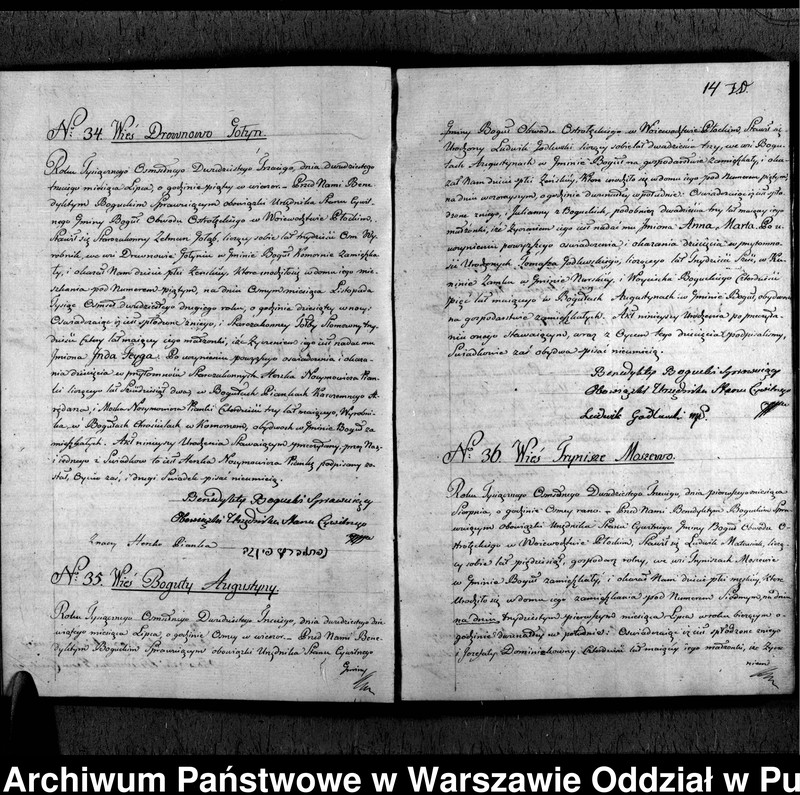 No 34. Wieś Drewnowo Gołyn.
Roku Tysiącznego Osmsetnego Dwudziestego Trzeciego, dnia dwudziestego
trzeciego miesiąca Lipca, o godzinie piątey w wieczor. Przed Nami Bene-
dyktym Boguckim Sprawuiącym obowiązki Urzędnika Stanu Cywil-
nego Gminy Bogut Obwodu Ostrołęckiego w Woiewodztwie Płockim,
Stawił się Starozakonny Zelman Gołąb, liczący sobie lat trzydzieści Osm Wy-
robnik, we wsi Drewnowie Gołynie w Gminie Bogut Komornie zamieszka-
ły, i okazał Nam dziecię płci żeńskiey, które urodziło się w domu iego mie-
szkania pod Numerem piątym, na dniu Osmym miesiąca Listopada
Tysiąc Osmset dwudziestego drugiego roku, o godzinie dziesiątey w nocy:
Oswiadczaiąc iż iest spłodzone z niego, i Starozakonney
dzieści Cztery lat maiącey iego małżonki, iż życzeniem iego iest nadać mu
Jmiona Po uczynieniu powyższego oswiadczenia i okaza-
nia dziecięcia w przytomności Starozakonnych Herszka Noymowicza Pian-
ki liczącego lat Szesdziesiąt dwa, w Bogutach Piankach Karczemnego A-
rędarza, i Moska Noymowicza Pianki Czterdzieści trzy lat maiącego, Wyrobni-
ka, w Bogutach w Komornem, obydwoch w Gminie Bogut za-
mieszkałych. Akt ninieyszy Urodzenia Stawaiącym przeczytany, przez Nas
i iednego z Swiadkow to iest Herszka Noymowicza Piankę podpisany zo-
stał, Oyciec zaś, i drugi Swiadek pisać nieumieią.
Benedykty Bogucki Sprawuiący
Obowiązki Urzędnika Stanu Cywilnego
Znaczy Herszko Pianka
No 35. Wieś Boguty Augustyny.
Roku Tysiącznego Osmsetnego Dwudziestego Trzeciego, dnia dwudziestego dzie-
wiątego miesiąca Lipca, o godzinie Osmey w wieczor. Przed Nami Bene-
dyktym Boguckim Sprawuiącym obowiązki Urzędnika Stanu Cywilnego
Gminy
14
Gminy Bogut Obwodu Ostrołęckiego w Woiewodztwie Płockim, Stawił się
Urodzony Ludwik Godlewski liczący sobie lat dwadzieścia trzy, we wsi Bogu-
tach Augustynach w Gminie Bogut na gospodarstwie zamieszkały, i oka-
zał Nam dziecię płci żeńskiey, które urodziło się w domu iego pod Numerem piątym,
na dniu wczorayszym, o godzinie dwunastey w południe: Oswiadczaiąc iż iest spło-
dzone z niego, i Julianny z Boguckich, podobnież dwadzieścia trzy lat maiącey iego
małżonki, iż życzeniem iego iest nadać mu Jmiona Anna, Marta. Po u-
czynieniu powyższego oswiadczenia i okazania dziecięcia w przytomno-
ści Urodzonych Tomasza Godlewskiego, liczącego lat Trzydzieści w
w Gminie i Woyciecha Boguckiego Czterdzieści
pięć lat maiącego w Bogutach Augustynach w Gminie Bogut, obydwoch
na gospodarstwie zamieszkałych. Akt ninieyszy Urodzenia po przeczyta-
niu onego Stawaiącym, wraz z Oycem tego dziecięcia podpisaliśmy,
Swiadkowie zaś obydwa pisać nieumieią.
Benedykty Bogucki Sprawuiący
Obowiązki Urzędnika Stanu Cywilnego
Ludwik Godlewski
No 36. Wieś Trynisze Maszewo.
Roku Tysiącznego Osmsetnego Dwudziestego Trzeciego, dnia pierwszego miesiąca
Sierpnia, o godzinie Osmey rano. Przed Nami Benedyktym Boguckim Spra-
wuiącym obowiązki Urzędnika Stanu Cywilnego Gminy Bogut Obwodu O-
strołęckiego w Woiewodztwie Płockim, Stawił się Ludwik liczą-
cy sobie lat pięćdziesiąt, gospodarz rolny, we wsi Tryniszach Maszewie
w Gminie Bogut zamieszkały, i okazał Nam dziecię płci męskiey, które
Urodziło się w domu iego zamieszkania pod Numerem Siodmym, na dniu
na dniu Trzydziestym pierwszym miesiąca Lipca w roku bieżącym o
godzinie dwunastey w południe: Oswiadczaiąc iż iest spłodzone z niego
i Jozefaty Dominikowny Czterdzieści lat maiącey iego małżonki, iż życze-
niem
Archiwum Państwowe w Warszawie Oddział w Pu